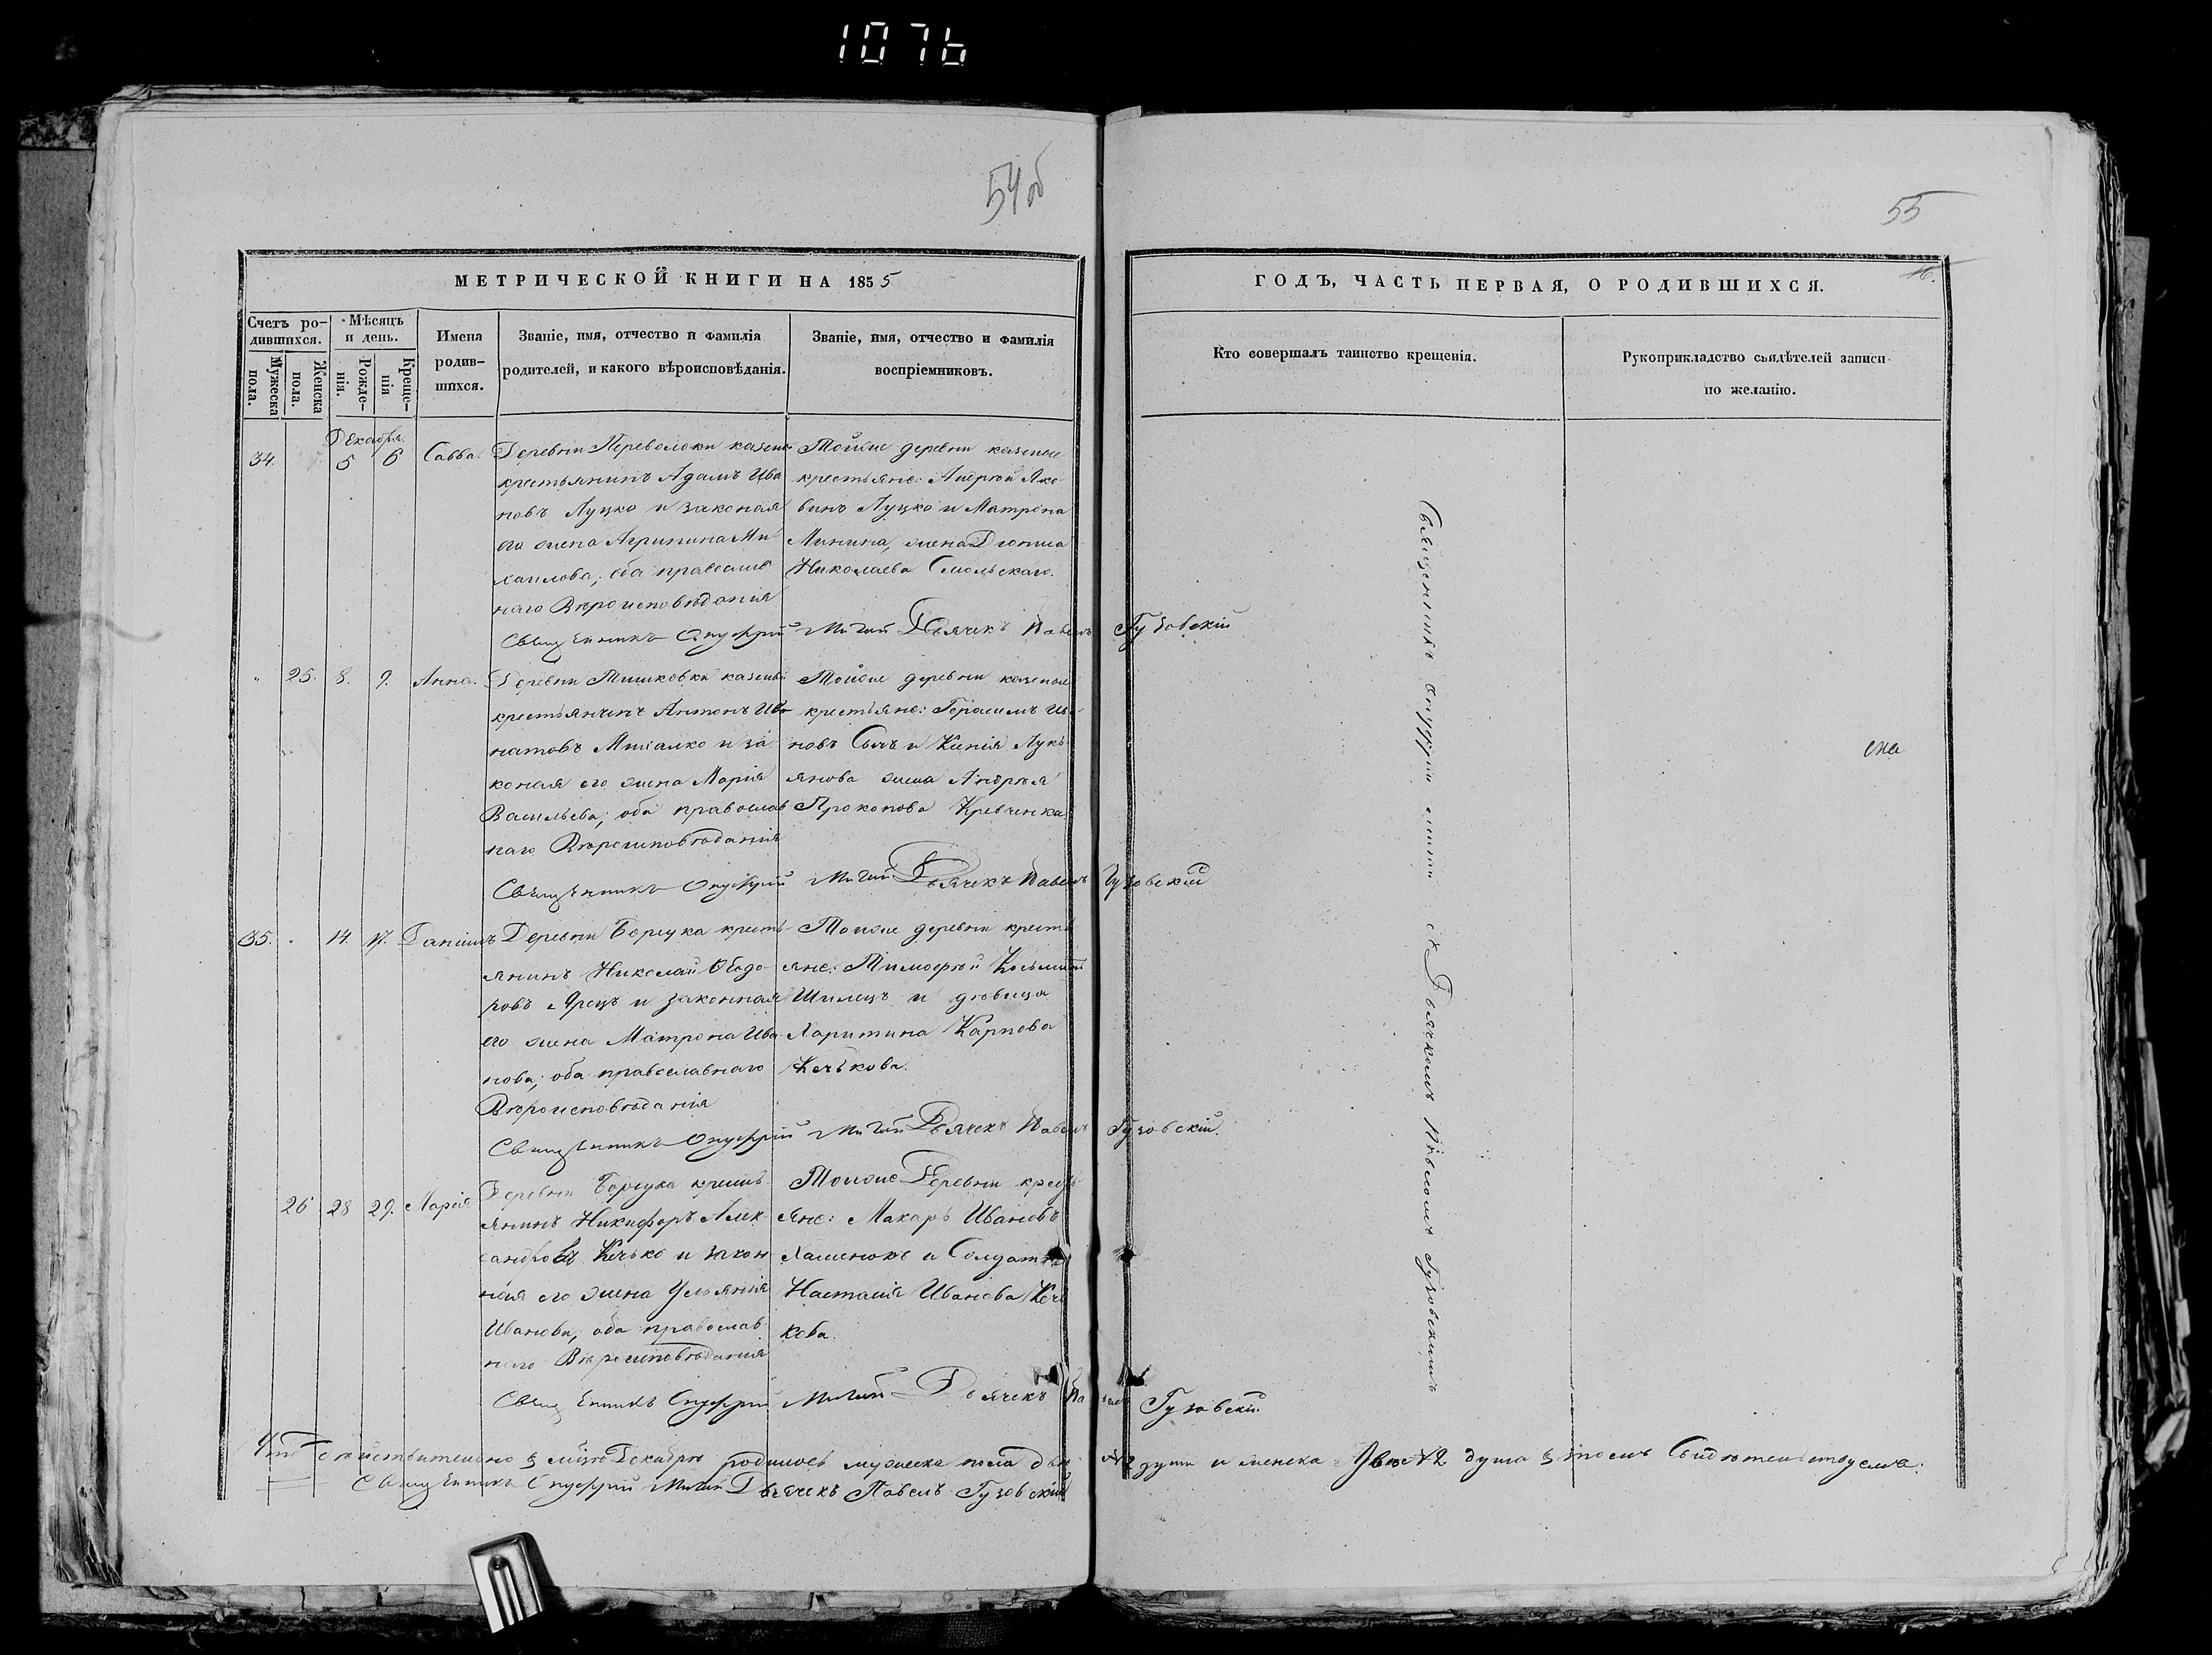 1076
54 об
55
МЕТРИЧЕСКОЙ КНИГИ НА 1855
ГОДЪ, ЧАСТЬ ПЕРВАЯ, О РОДИВШИХСЯ.
Счетъ ро-
дившихся.
Мужеска
пола.
Женска
пола.
Мѣсяцъ
и день.
Рожде-
нія.
Креще-
нія
Имена
родив-
шихся.
Званіе, имя, отчество и фамилія
родителей, и какого вѣроисповѣданія.
Званіе, имя, отчество и фамилія
воспріемниковъ.
Кто совершалъ таинство крещенія.
Рукоприкладство свидѣтелей записи
по желанію.
Декабря.
34. 5 6 Савва.
Деревни Переволоки казенный
крестьянинъ Адамъ Ива
новъ Луцко и законая
его жена Агрипина Ми
хаилова; оба православ
наго Вѣроисповѣданія
Тойже деревни казеные
крестьяне: Андрей Яко
Луцко и Матрона
Минина, жена
Николаева Смольскаго.
Священникъ Онуфрій Митий Дьячекъ Павелъ Гузовскій
25. 8. 9. Анна.
Деревни Тишковки
крестьянинъ Антонъ
натовъ Михалко и за
коная его жена Марія
Васильева; оба православ
наго Вѣроисповѣданія
Тойже деревни казеные
крестьяне: Герасимъ Ива
новъ Сычъ и Ксенія Лукь
янова жена Андрея
Прокопова
Священникъ Онуфрій Митий Дьячекъ Павелъ Гузовскій
35. 14. 17. Даніилъ
Деревни Борсука кресть
янинъ Николай Ѳеодо
ровъ Ярецъ и законная
его жена Матрона Ива
нова; оба православнаго
Вѣроисповѣданія
Тойже деревни кресть
яне: Тимофей Косьминъ
Шилецъ и дѣвица
Харитина Карпова
Кечькова.
Священникъ Онуфрій Митий Дьячекъ Павелъ Гузовскій.
26 28 29. Марія
Деревни Борсука кресть
янинъ Никифоръ Алек
сандровъ Кечько и закон
ная его жена Ульянія
Иванова, оба православ
наго Вѣроисповѣданія
Тойже Деревни кресть
яне: Макаръ Ивановъ
и Солдатка
Настасія Иванова Кечь
кова.
Священникъ Онуфрій Митий Дьячекъ Павелъ Гузовскій
Священникъ Онуфрій Митий съ Дьячкомъ Павломъ Гузовскимъ
Что дѣйствительно въ мцѣ Декабрѣ родилось мужеска пола двѣ №2 души и женска двѣ №2 душа въ томъ Свидѣтельствуемъ:
Священникъ Онуфрій Митий Дьячекъ Павелъ Гузовскій